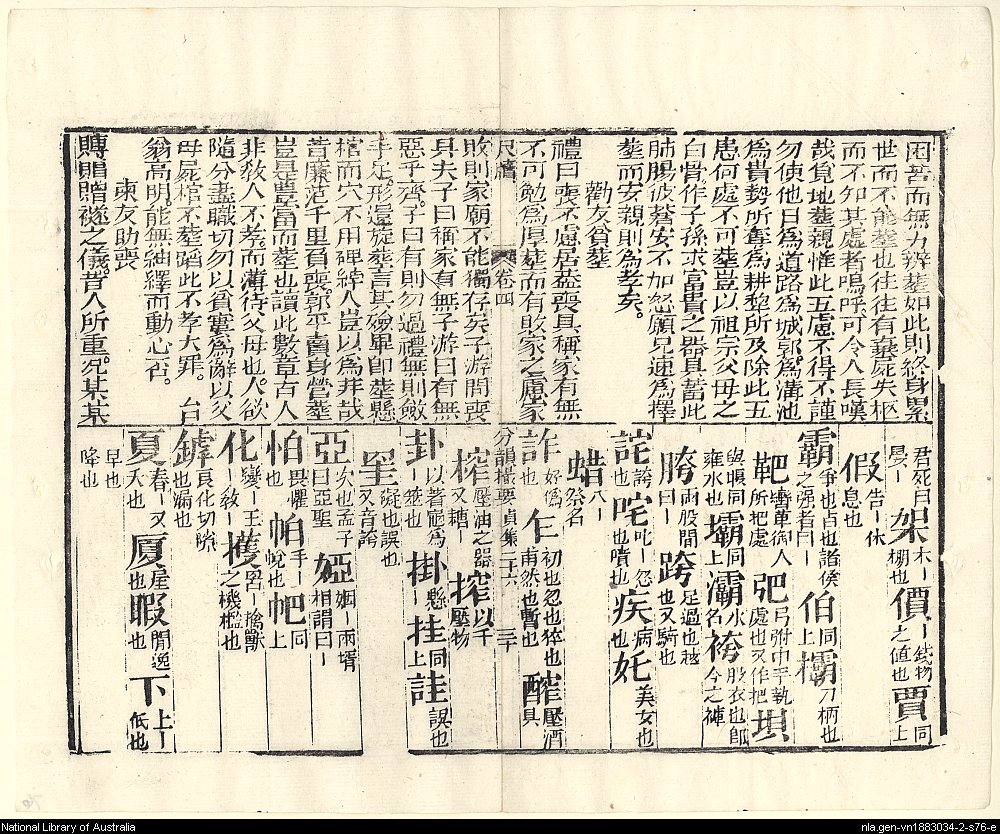 困苦而無力辨塟如此則終身累
世而不能塟也往往有棄屍失柩
而不知其處者嗚呼可令人長嘆
哉貧地塟親惟此五慮不得不謹
勿使他日爲道路爲城郭爲溝池
爲貴勢所奪爲耕犂所及除此五
患何處不可塟豈以祖宗父母之
白骨作子孫求富貴之器具蓄此
肺腸彼蒼安不加怒願兄速爲擇
塟而安親則爲孝矣。
勸友貧塟
禮曰喪不慮居盖喪具稱家有無
不可勉爲厚塟而有敗家之慮家
尺牘 卷四
敗則家廟不能獨存矣子游問喪
具夫子曰稱家有無子游曰有無
惡乎齊。子曰有則勿過禮無則斂
手足形還旋塟言其斂畢即塟懸
棺而穴不用碑繂人豈以爲非哉
昔廉范千里負喪郭平賣身營塟
豈是豊富而塟也讀此數章古人
非教人不孝而薄待父母也人欲
隨分盡職切勿以貧窶爲辭以父
母屍棺不塟蹈此不孝大罪。台
翁高明能無紬繹而動心否。
柬友助喪
賻賵贈襚之儀。昔人所重况某某
君死曰晏― 架木―棚也 價―錢物之値也 賈同上
假告―休息也
霸爭也占也諸侯之强者曰― 伯同上 欛刀柄也
靶轡革御人所把處 弝弓弣中手執處也又作把 垻
與堰同雍水也 壩同上 灞水名 袴股衣也郎今之褲
胯兩股間曰― 跨足過也越也又騎也
詫誇也 咤叱―怒也噴也 疾病也 奼美女也
蜡八―祭名
詐好僞也 乍初也忽也猝也甫然也暫也 醡壓酒具
分韻撮要 貞集二十六 三十
榨壓油之器又糖― 搾以手壓物
卦以蓍𥮅爲―筮也 掛懸― 挂同上 詿誤也
罣礙也誤也又音誇
亞次也孟子曰亞聖 婭姻―兩壻相謂曰―
怕畏懼也 帕手―帨也 帊同上
化變―王教― 擭罟―擒獸之機檻也
罅㒵化切隙也漏也
夏春―又大也 厦屋也 暇閒逸也 下上―低也
早也
降也
National Library of Australia
nla.gen-vn1883034-2-s76-e